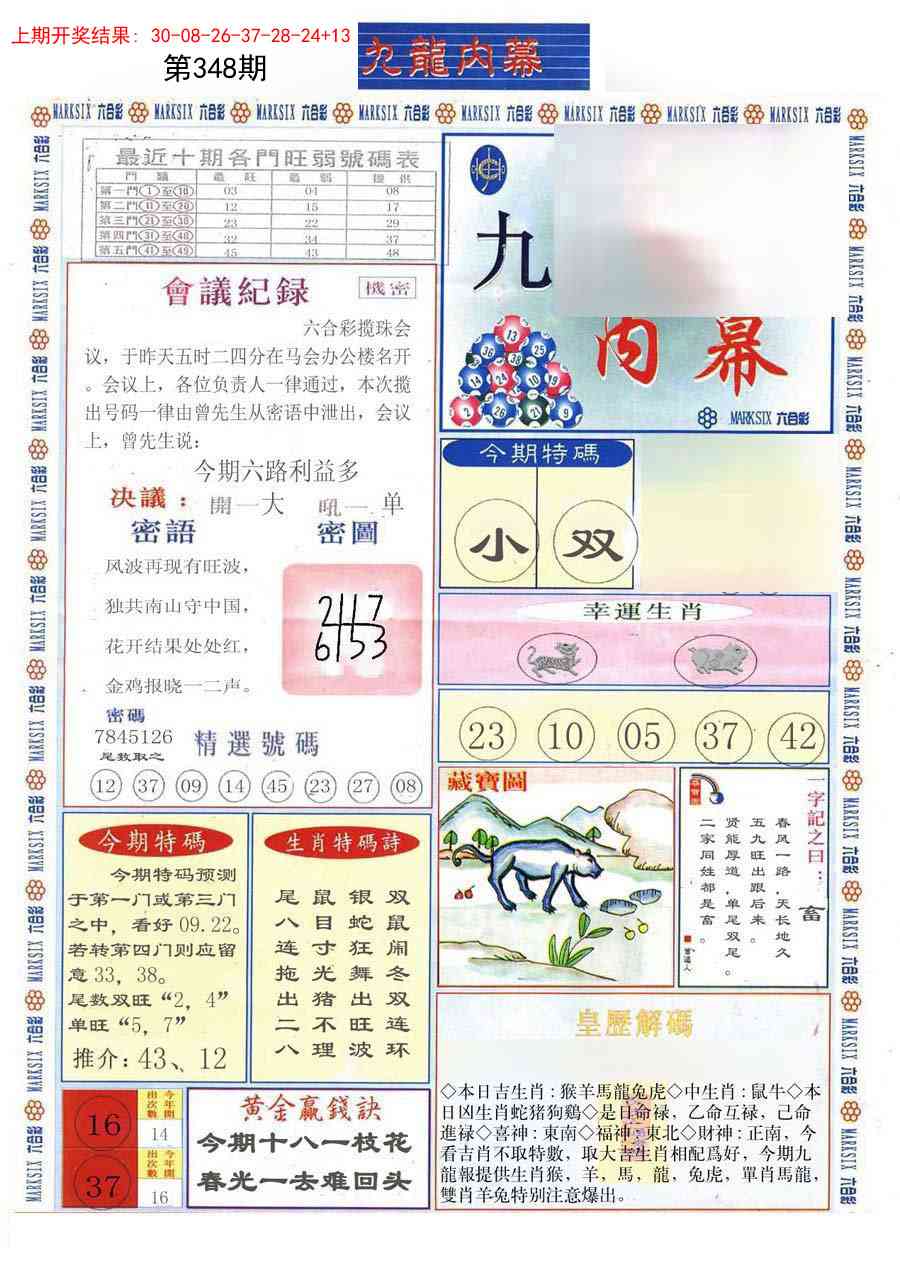 上期开奖结果: 30-08-26-37-28-24+13
第348期
九龍內幕
MARKSIX 六合彩
最近十期各門旺弱號碼表
門 類 最 旺 最 弱 提 供
第一門①至⑩ 03 04 08
第二門⑪至⑳ 12 15 17
第三門㉑至㉚ 23 22 29
第四門㉛至㊵ 32 34 37
第五門㊶至㊾ 45 43 48
會議紀録
機密
六合彩揽珠会
议，于昨天五时二四分在马会办公楼名开
。会议上，各位负责人一律通过，本次揽
出号码一律由曾先生从密语中泄出，会议
上，曾先生说：
今期六路利益多
决議： 開一大 吼一单
密語 密圖
风波再现有旺波，
独共南山守中国，
花开结果处处红，
金鸡报晓一二声。
2117
6153
密碼
7845126
尾数取之
精選號碼
12 37 09 14 45 23 27 08
九
内幕
13
36 38 25
14 24 10 19
2 26 21 9
MARKSIX 六合彩
今期特碼
小 双
幸運生肖
23 10 05 37 42
今期特碼
今期特码预测
于第一门或第三门
之中，看好 09.22。
若转第四门则应留
意 33，38。
尾数双旺“2，4”
单旺“5，7”
推介：43、12
生肖特碼詩
双鼠闹冬双连环
银蛇狂舞出旺波
鼠目寸光猪不理
尾八连拖出二八
藏寶圖
一字記之日：畜
春风一路，天长地久
五九旺出跟后来。
贤能厚道，单尾双尾。
二家同姓都是富。
曾道人
16
今年開出次數
14
37
今年開出次數
16
黄金贏錢訣
今期十八一枝花
春光一去难回头
皇歷解碼
◇本日吉生肖：猴羊馬龍兔虎◇中生肖：鼠牛◇本
日凶生肖蛇猪狗鷄◇是日命禄，乙命互禄，己命
進禄◇喜神：東南◇福神：東北◇財神：正南，今
看吉肖不取特數，取大吉生肖相配爲好，今期九
龍報提供生肖猴，羊，馬，龍，兔虎，單肖馬龍，
雙肖羊兔特别注意爆出。